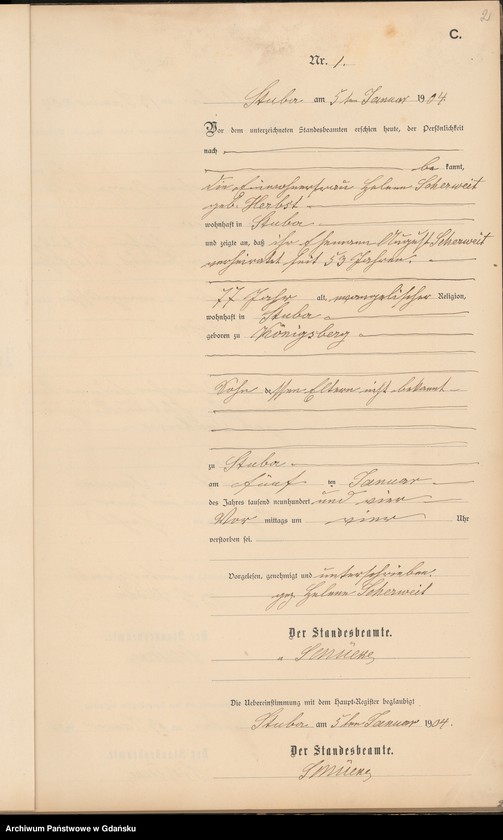 2
C.
Nr. 1.
Stuba am 5ten Januar 1904
Vor dem unterzeichneten Standesbeamten erschien heute, der Persönlichkeit
nach
be kannt,
die Einwohnerfrau Helene Scherweit
geb. Herbst
wohnhaft in Stuba
und zeigte an, daß ihr Ehemann August Scherweit
verheiratet seit 53 Jahren.
77 Jahr alt, evangelischer Religion,
wohnhaft in Stuba
geboren zu Königsberg
Sohn dessen Eltern nicht bekannt
zu Stuba
am fünf ten Januar
des Jahres tausend neunhundert und vier
Vor mittags um vier Uhr
verstorben sei.
Vorgelesen, genehmigt und unterschrieben.
gez. Helene Scherweit
Der Standesbeamte.
Die Uebereinstimmung mit dem Haupt-Register beglaubigt
Stuba am 5ten Januar 1904.
Der Standesbeamte.
Archiwum Państwowe w Gdańsku